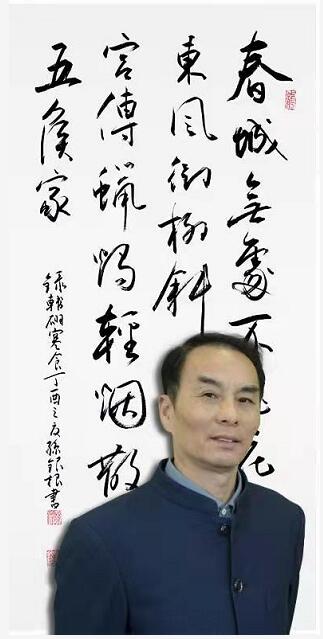 春城無處不
東風御柳斜
宮傳蠟燭輕烟散
五侯家
錄韓翃寒食丁酉之夏孫銀根書